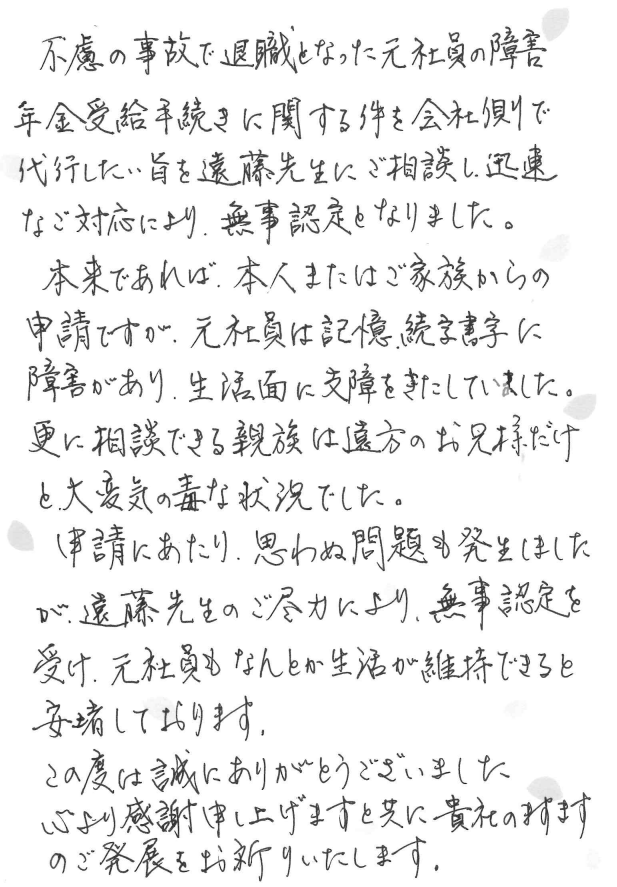 不慮の事故で退職となった元社員の障害
年金受給手続きに関する件を会社側で
代行したい旨を遠藤先生にご相談し、迅速
なご対応により、無事認定となりました。
本来であれば、本人またはご家族からの
申請ですが、元社員は記憶、続字書字に
障害があり、生活面に支障をきたしていました。
更に相談できる親族は遠方のお兄様だけ
と、大変気の毒な状況でした。
申請にあたり、思わぬ問題も発生しました
が、遠藤先生のご尽力により、無事認定を
受け、元社員もなんとか生活が維持できると
安堵しております。
この度は誠にありがとうございました
心より感謝申し上げますと共に貴社のますます
のご発展をお祈りいたします。